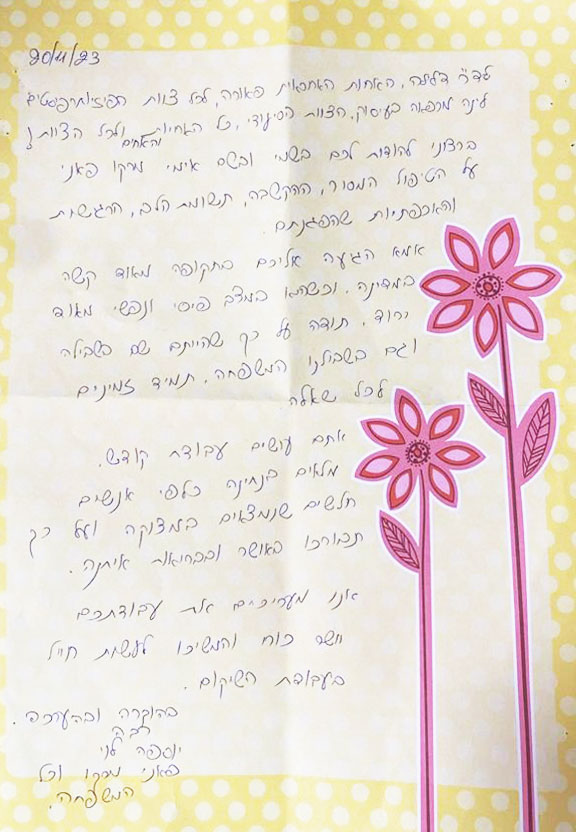 20/11/23
לד"ר דלילה, האחות האחראית פאורה, לכל צוות הפיזיותרפיסטים
לינה מרפאה בעיסוק, הצוות הסיעודי, כל האחיות והאחים ולכל הצוות!
ברצוני להודות לכם בשמי ובשם אימי מרקו פאני
על הטיפול המסור, ההקשבה, תשומת הלב, הרגישות
והאכפתיות שהפגנתם.
אמא הגעה אליכם בתקופה מאוד קשה
במדינה. וכשהיא במצב פיסי ונפשי מאוד
ירוד. תודה על כך שהייתם שם בשבילה
וגם בשבילנו המשפחה. תמיד זמינים
לכל שאלה
אתם עושים עבודת קודש.
מלאים בנתינה כלפי אנשים
חלשים שנמצאים במצוקה ועל כך
תבורכו באושר ובבריאות איתנה.
אנו מעריכים את עבודתכם
יושר כוח והמשיכו לעשות חייל
בעבודת השיקום.
בהוקרה ובהערכה
רבה
יוספה לוי
פאני מרקו וכל
המשפחה.